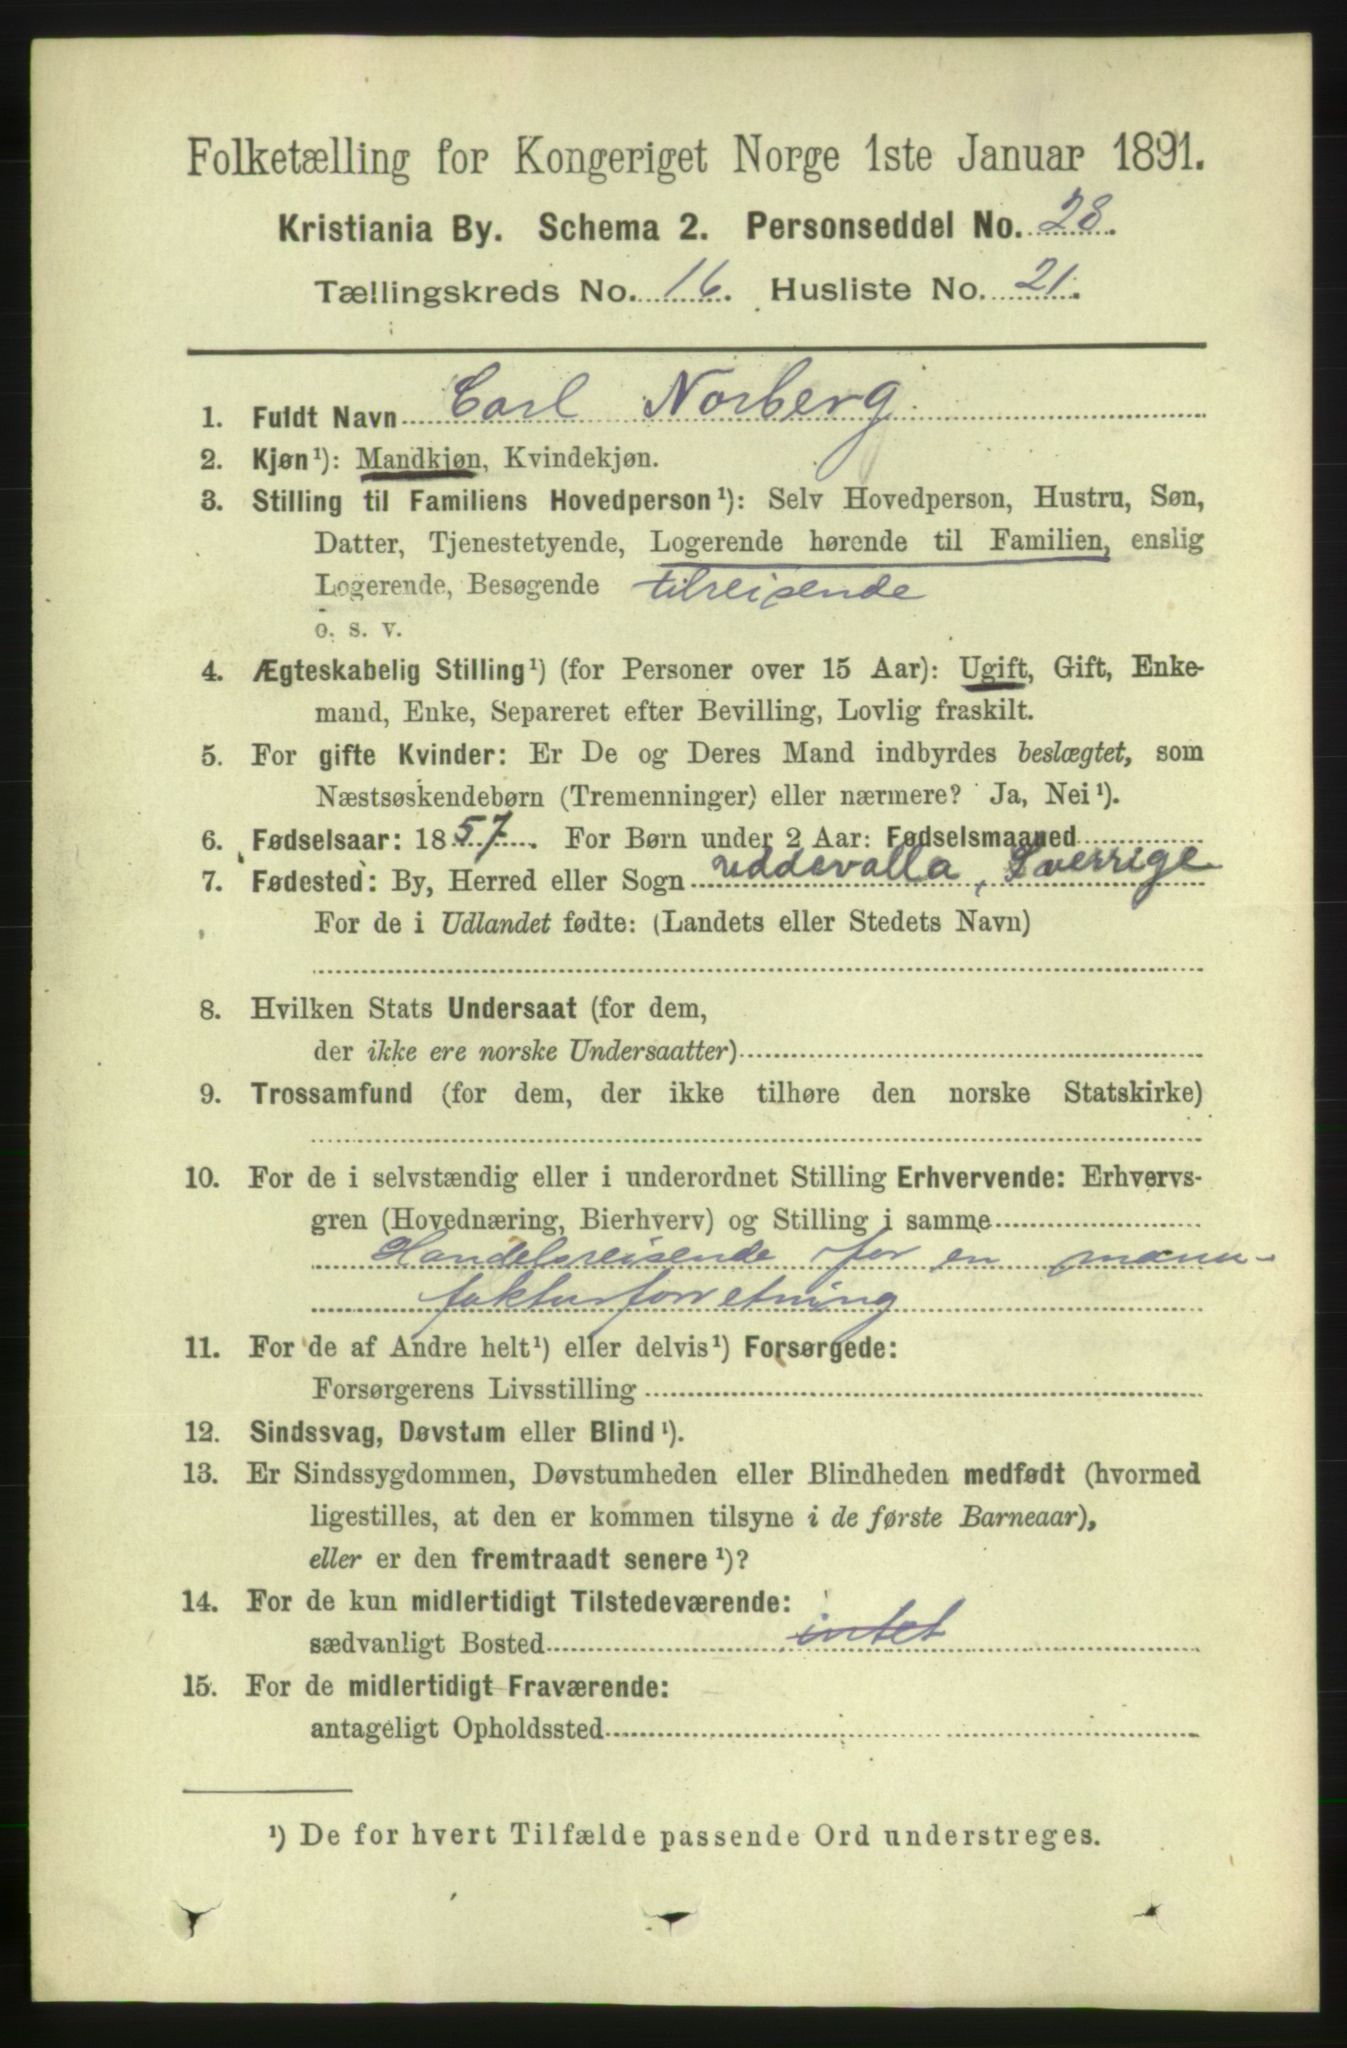 Folketælling for Kongeriget Norge 1ste Januar 1891.
Kristiania By. Schema 2. Personseddel No. 28.
Tællingskreds No. 16. Husliste No. 21.
1. Fuldt Navn Carl Norberg
2. Kjøn¹): Mandkjøn, Kvindekjøn.
3. Stilling til Familiens Hovedperson¹): Selv Hovedperson, Hustru, Søn,
Datter, Tjenestetyende, Logerende hørende til Familien, enslig
Logerende, Besøgende tilreisende
o. s. v.
4. Ægteskabelig Stilling¹) (for Personer over 15 Aar): Ugift, Gift, Enke-
mand, Enke, Separeret efter Bevilling, Lovlig fraskilt.
5. For gifte Kvinder: Er De og Deres Mand indbyrdes beslægtet, som
Næstsøskendebørn (Tremenninger) eller nærmere? Ja, Nei¹).
6. Fødselsaar: 1857. For Børn under 2 Aar: Fødselsmaaned
7. Fødested: By, Herred eller Sogn uddevalla, Sverrige
For de i Udlandet fødte: (Landets eller Stedets Navn)
8. Hvilken Stats Undersaat (for dem,
der ikke ere norske Undersaatter)
9. Trossamfund (for dem, der ikke tilhøre den norske Statskirke)
10. For de i selvstændig eller i underordnet Stilling Erhvervende: Erhvervs-
gren (Hovednæring, Bierhverv) og Stilling i samme
Handelsreisende for en manu-
fakturforretning
11. For de af Andre helt¹) eller delvis¹) Forsørgede:
Forsørgerens Livsstilling
12. Sindssvag, Døvstum eller Blind¹).
13. Er Sindssygdommen, Døvstumheden eller Blindheden medfødt (hvormed
ligestilles, at den er kommen tilsyne i de første Barneaar),
eller er den fremtraadt senere¹)?
14. For de kun midlertidigt Tilstedeværende:
sædvanligt Bosted intet
15. For de midlertidigt Fraværende:
antageligt Opholdssted
¹) De for hvert Tilfælde passende Ord understreges.